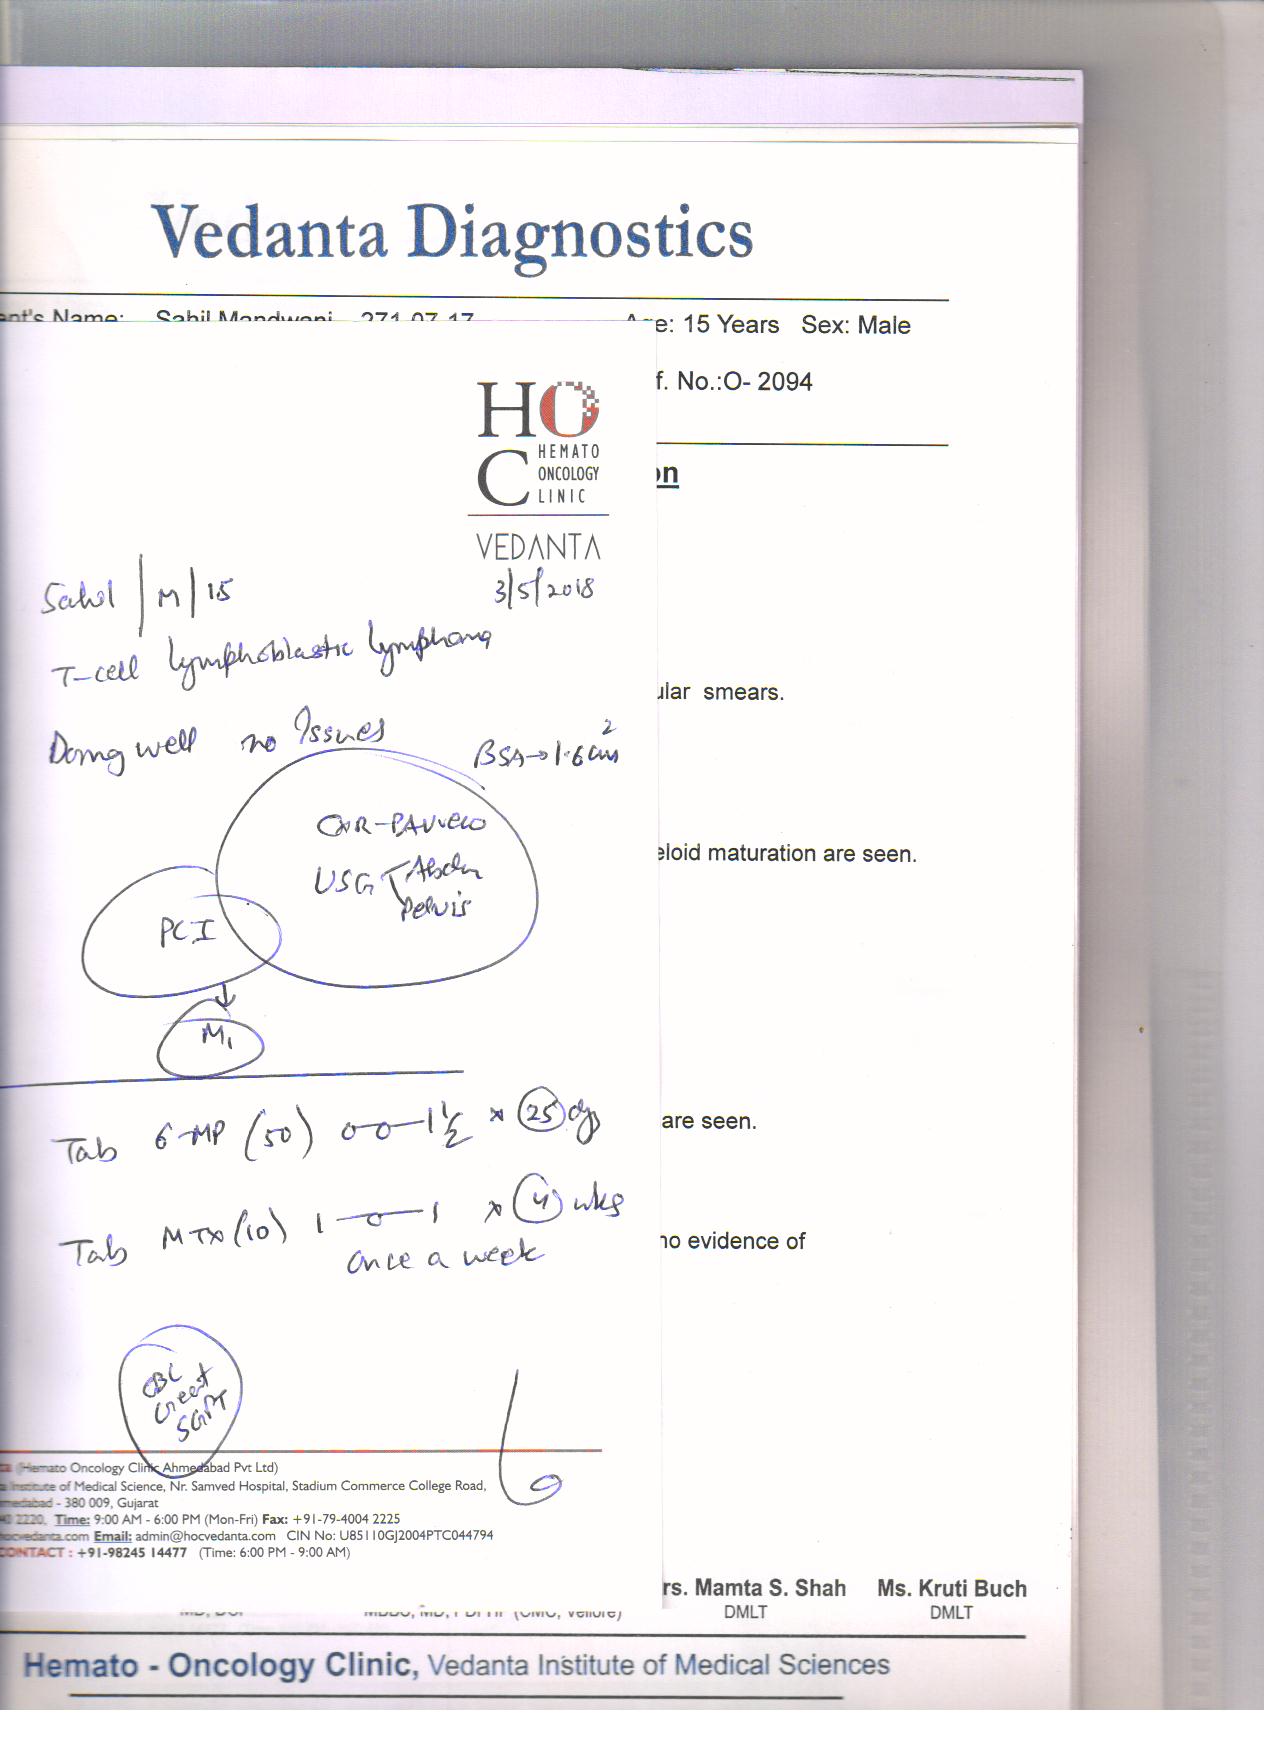 Vedanta Diagnostics
ent's Name: Sahil Mandwani 271-07-17 Age: 15 Years Sex: Male
f. No.:O- 2094
on
HOC
HEMATO
ONCOLOGY
CLINIC
VEDANTA
3/5/2018
Sahil | M | 15
T-cell lymphoblastic lymphoma
ular smears.
Doing well no Issues
BSA→1.6
CXR-PA
eloid maturation are seen.
USG Abdn
Pelvis
PCI
M1
Tab 6-MP (50) 0-0-1½ × 25 dys
are seen.
Tab MTX (10) 1-0-1 × 4 wks
once a week
no evidence of
CBC
Creat
SGPT
ta (Hemato Oncology Clinic Ahmedabad Pvt Ltd)
a Institute of Medical Science, Nr. Samved Hospital, Stadium Commerce College Road,
medabad - 380 009, Gujarat
2220, Time: 9:00 AM - 6:00 PM (Mon-Fri) Fax: +91-79-4004 2225
hocvedanta.com Email: admin@hocvedanta.com CIN No: U85110GJ2004PTC044794
CONTACT : +91-98245 14477 (Time: 6:00 PM - 9:00 AM)
rs. Mamta S. Shah Ms. Kruti Buch
DMLT DMLT
Hemato - Oncology Clinic, Vedanta Institute of Medical Sciences